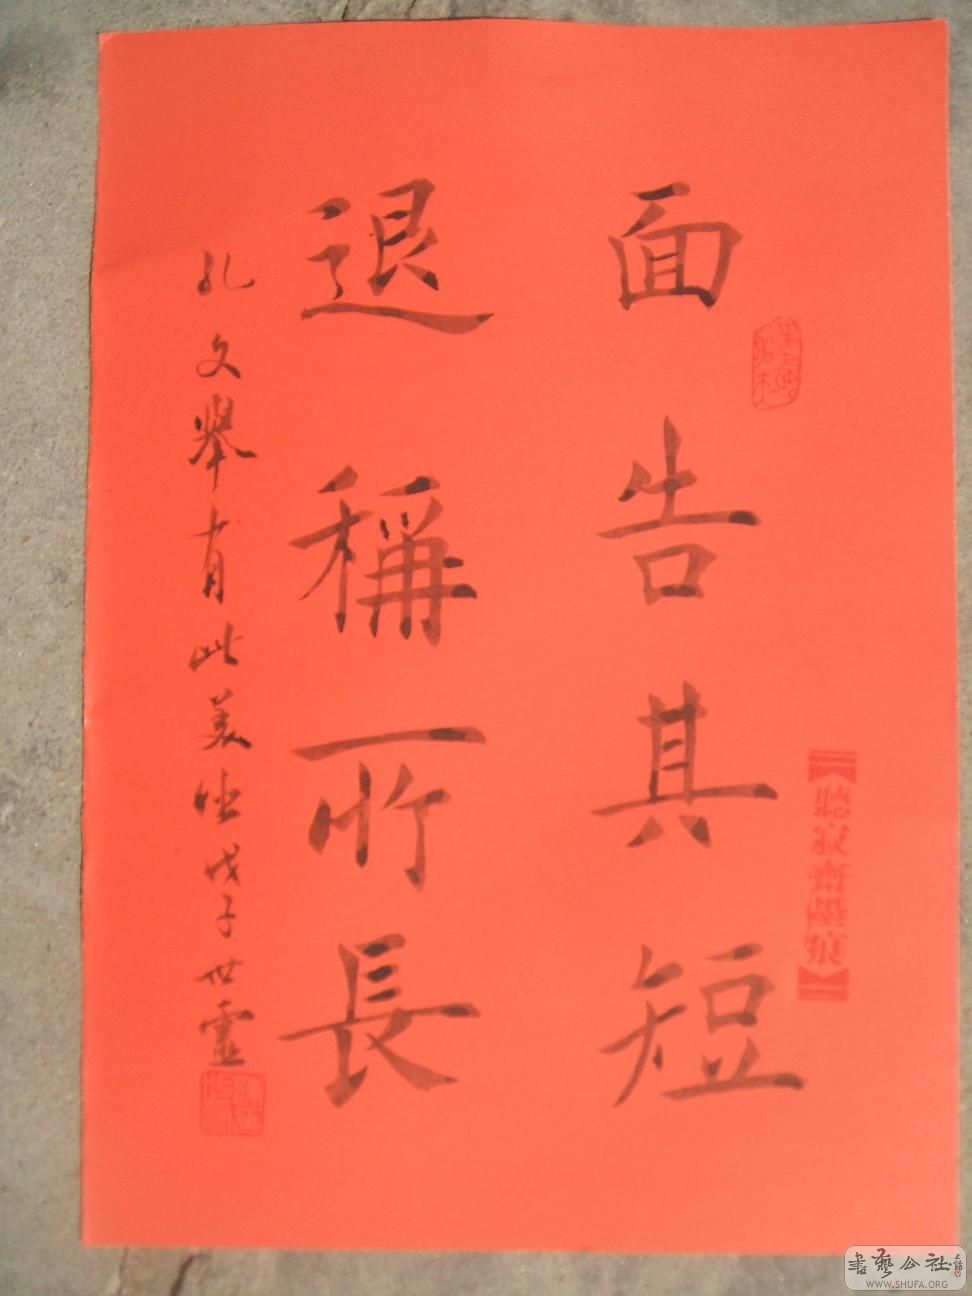 面告其短
退稱所長
孔文舉有此美德戊子世靈
聽寂齋墨痕
書藝公社
WWW.SHUFA.ORG